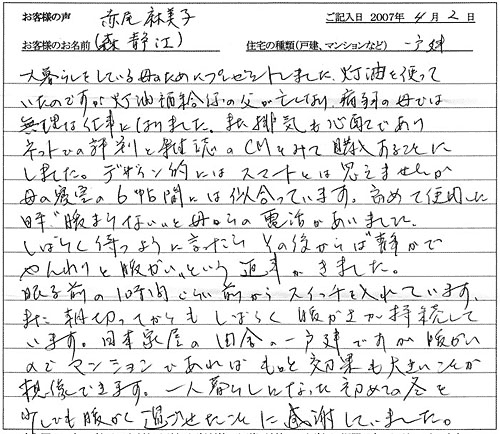 お客様の声 赤尾麻美子 ご記入日 2007年 4月 2日
お客様のお名前(森 静江) 住宅の種類(戸建、マンションなど) 一戸建
一人暮らしをしている母のためにプレゼントしました。灯油を使って
いたのですが灯油補給係の父が亡くなり、病弱の母では
無理な仕事になりました。また排気も心配であり
ネットでの評判と雑誌のCMをみて購入することに
しました。デザイン的にはスマートとは思えませんが
母の寝室の6帖間には似合っています。初めて使用した
時"暖まらない"と母からの電話がありました。
しばらく待つように言ったら その後からは"静かで
やんわりと暖かい"という返事がきました。
眠る前の1時間くらい前からスイッチを入れています。
また朝切ってからもしばらく暖かさが持続して
います。日本家屋の田舎の一戸建ですが暖かい
のでマンションであればもっと効果も大きいことが
想像できます。一人暮らしになった初めての冬を
少しでも暖かく過ごせたことに感謝していました。